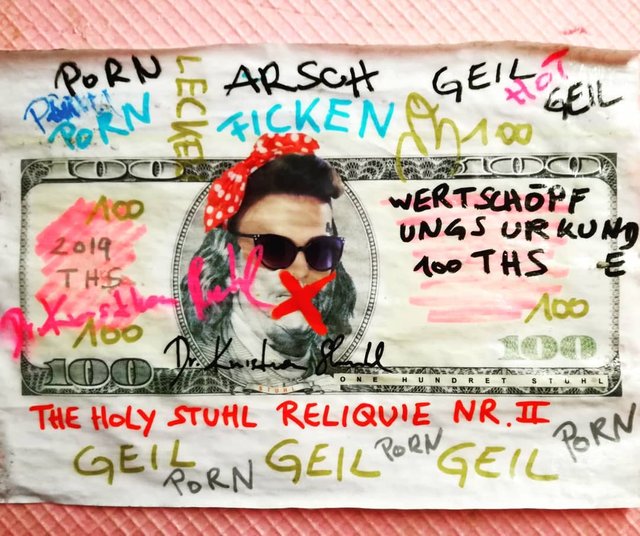 PORN
ARSCH
GEIL
HOT
GEIL
PORN
PORN
LECKER
FICKEN
100
100
100
100
WERTSCHÖPF
UNGSURKUND
E
100 THS
2019
THS.
100
100
Dr. Kristian Stuhl
100
100
Dr. Kristian Stuhl
STUHL
ONE HUNDRET STUHL
THE HOLY STUHL RELIQUIE NR. II
GEIL
PORN
GEIL
PORN
GEIL
PORN